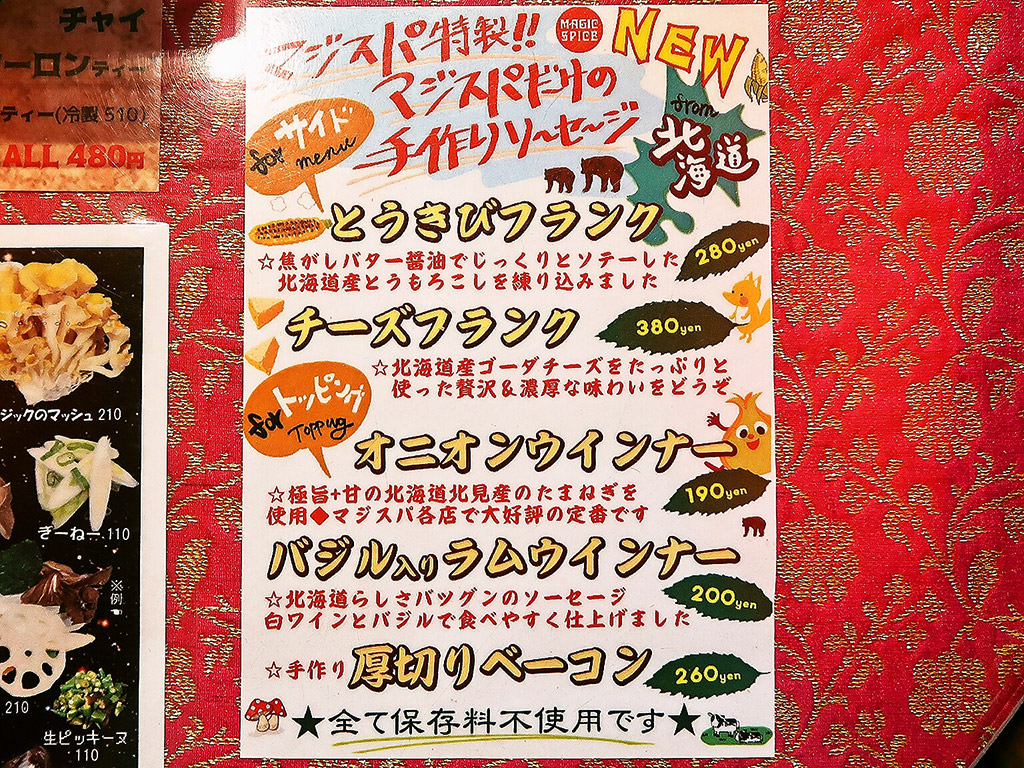 チャイ
ーロンティー
ティー(冷製 510)
ALL 480円
ジックのマッシュ 210
ぎーねー 110
※例
210
生ピッキーヌ
110
マジスパ特製!!
MAGIC
SPICE
NEW
マジスパだけの
手作りソ〜セ〜ジ
from
北海道
for サイド
menu
とうきびフランク
280yen
☆焦がしバター醤油でじっくりとソテーした
北海道産とうもろこしを練り込みました
チーズフランク
380yen
☆北海道産ゴーダチーズをたっぷりと
使った贅沢&濃厚な味わいをどうぞ
for トッピング
Topping
オニオンウインナー
190yen
☆極旨+甘の北海道北見産のたまねぎを
使用◆マジスパ各店で大好評の定番です
バジル入りラムウインナー
200yen
☆北海道らしさバツグンのソーセージ
白ワインとバジルで食べやすく仕上げました
☆手作り厚切りベーコン
260yen
★全て保存料不使用です★